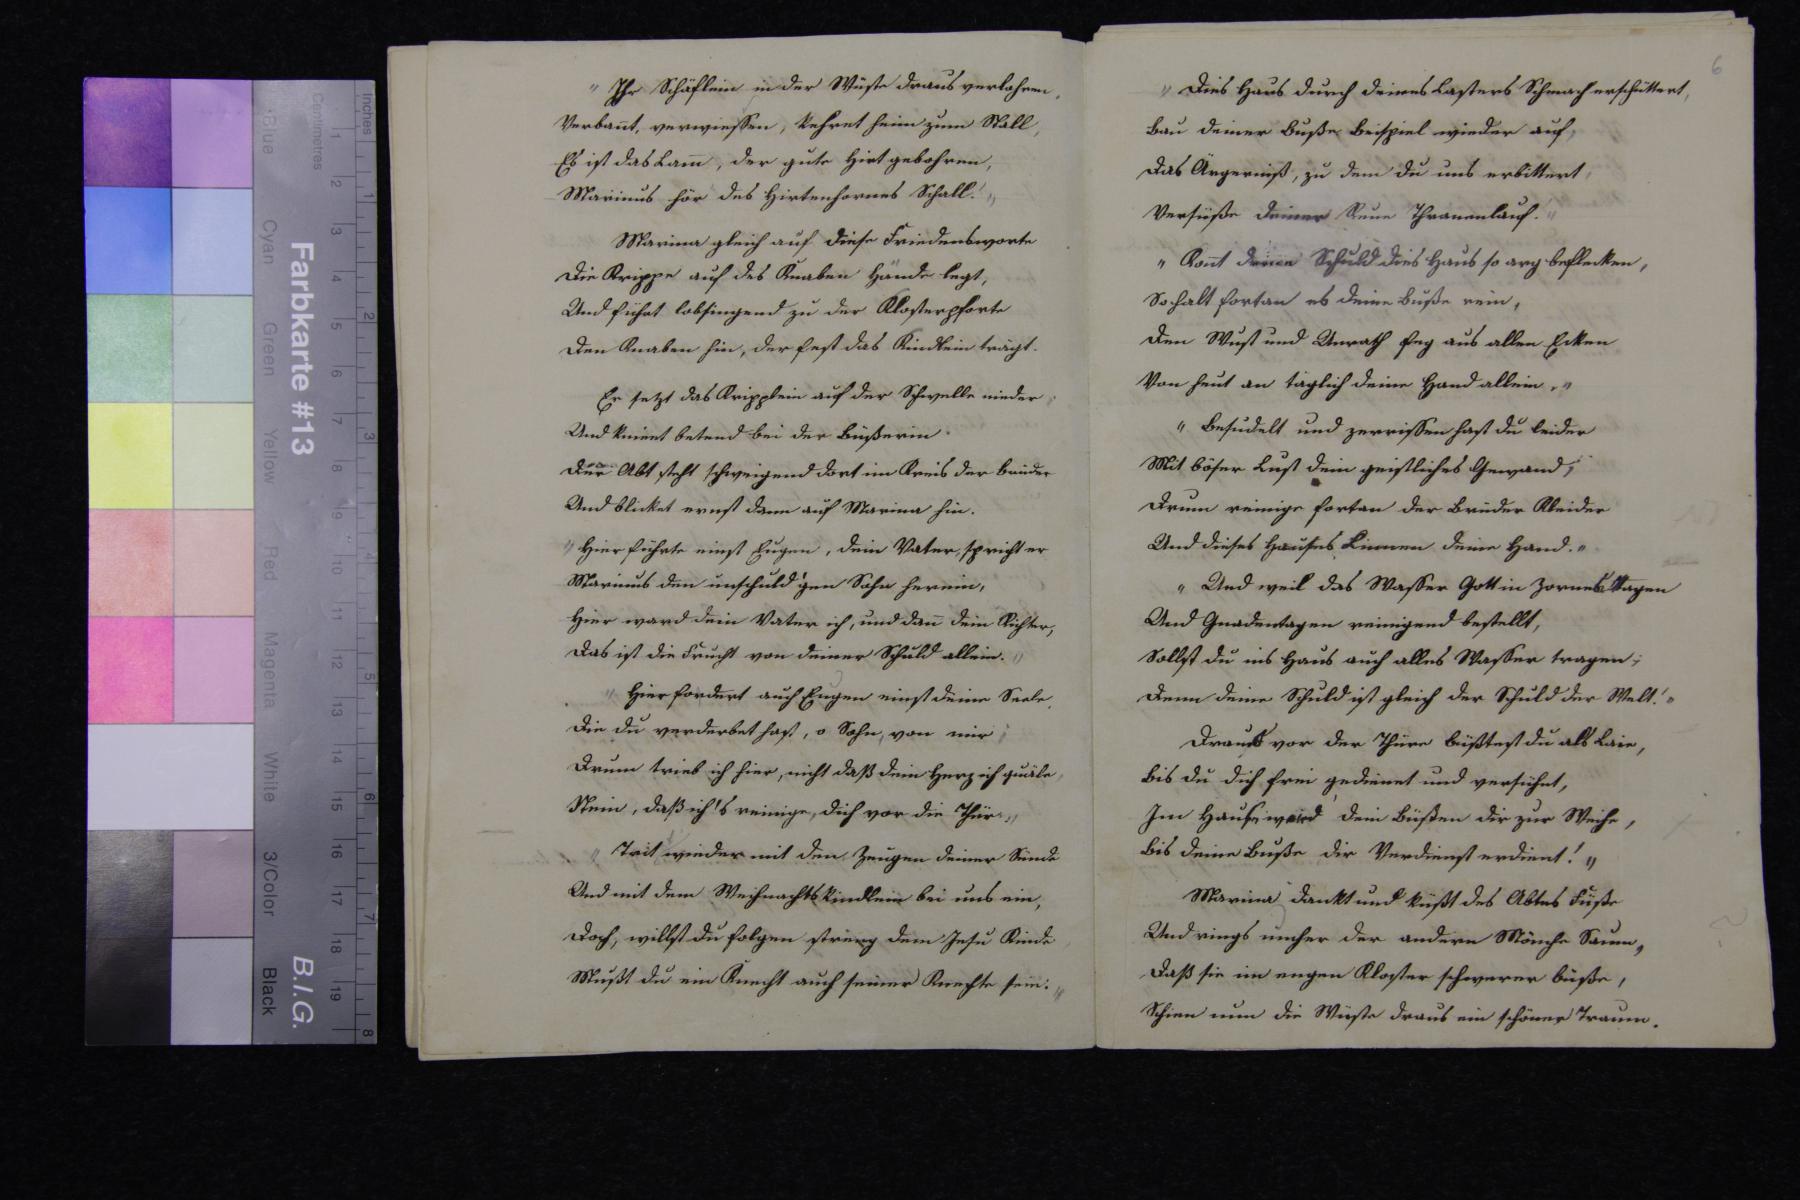 Inches
1 2 3 4 5 6 7 8
Centimetres
1 2 3 4 5 6 7 8 9 10 11 12 13 14 15 16 17 18 19
Farbkarte #13
B.I.G.
Blue
Cyan
Green
Yellow
Red
Magenta
White
3/Color
Black
" Ihr Schäflein in der Wüste draus verlohren,
Verbannt, verwiessen, kehret heim zum Stall,
Es ist das Lamm, der gute Hirt gebohren,
Marinus hör des Hirtenhornes Schall! "
Marina gleich auf diese Friedensworte
Die Krippe auf des Knaben Hände legt,
Und führt lobsingend zu der Klosterpforte
Den Knaben hin, der fest das Kindlein trägt.
Er setzt das Kripplein auf der Schwelle nieder
Und kniert betend bei der Büßerin.
Der Abt steht schweigend dort im Kreis der Brüder
Und blicket ernst dann auf Marina hin.
" Hier führte einst Eugen, dein Vater, spricht er
Marinus den unschuld'gen Sohn herein,
Hier ward dein Vater ich, und dann dein Richter,
Das ist die Frucht von deiner Schuld allein. "
" Hier fordert auch Eugen einst deine Seele,
Die du verderbet hast, o Sohn, von mir;
Drum trieb ich hier, nicht daß dein Herz ich quäle,
Nein, daß ich's reinige, dich vor die Thür. "
" Trit wieder mit den Zeugen deiner Sünde
Und mit dem Weihnachtskindlein bei uns ein,
Doch, willst du folgen streng dem Jesu Kinde
Mußt du ein Knecht auch seiner Knechte sein. "
6
" Dies Haus durch deines Lasters Schmach erschüttert,
Bau deiner Buße Beispiel wieder auf,
Das Ärgerniß, zu dem du uns erbittert,
Versüße deiner Reue Thränenlauf. "
" Konnt deine Schuld dies Haus so arg beflecken,
So halt fortan es deine Buße rein,
Den Wust und Unrath feg aus allen Ecken
Von heut an täglich deine Hand allein. "
" Besudelt und zerrissen hast du leider
Mit böser Lust dein geistliches Gewand,
Drum reinige fortan der Brüder Kleider
Und dieses Hauses Linnen deine Hand. "
" Und weil das Wasser Gott in Zornestagen
Und Gnadentagen reinigend bestellt,
Sollst du ins Haus auch alles Wasser tragen;
Denn deine Schuld ist gleich der Schuld der Welt! "
Draus vor der Thüre büßtest du als Laie,
Bis du dich frei gedienet und versühnt,
Im Hause wird dein Büßen dir zur Weihe,
Bis deine Buße dir Verdienst erdient! "
Marina dankt und küßt des Abtes Füße
Und rings umher der andern Mönche Saum,
Daß sie im engen Kloster schwerer büße,
Schien nun die Wüste draus ein schöner Traum.